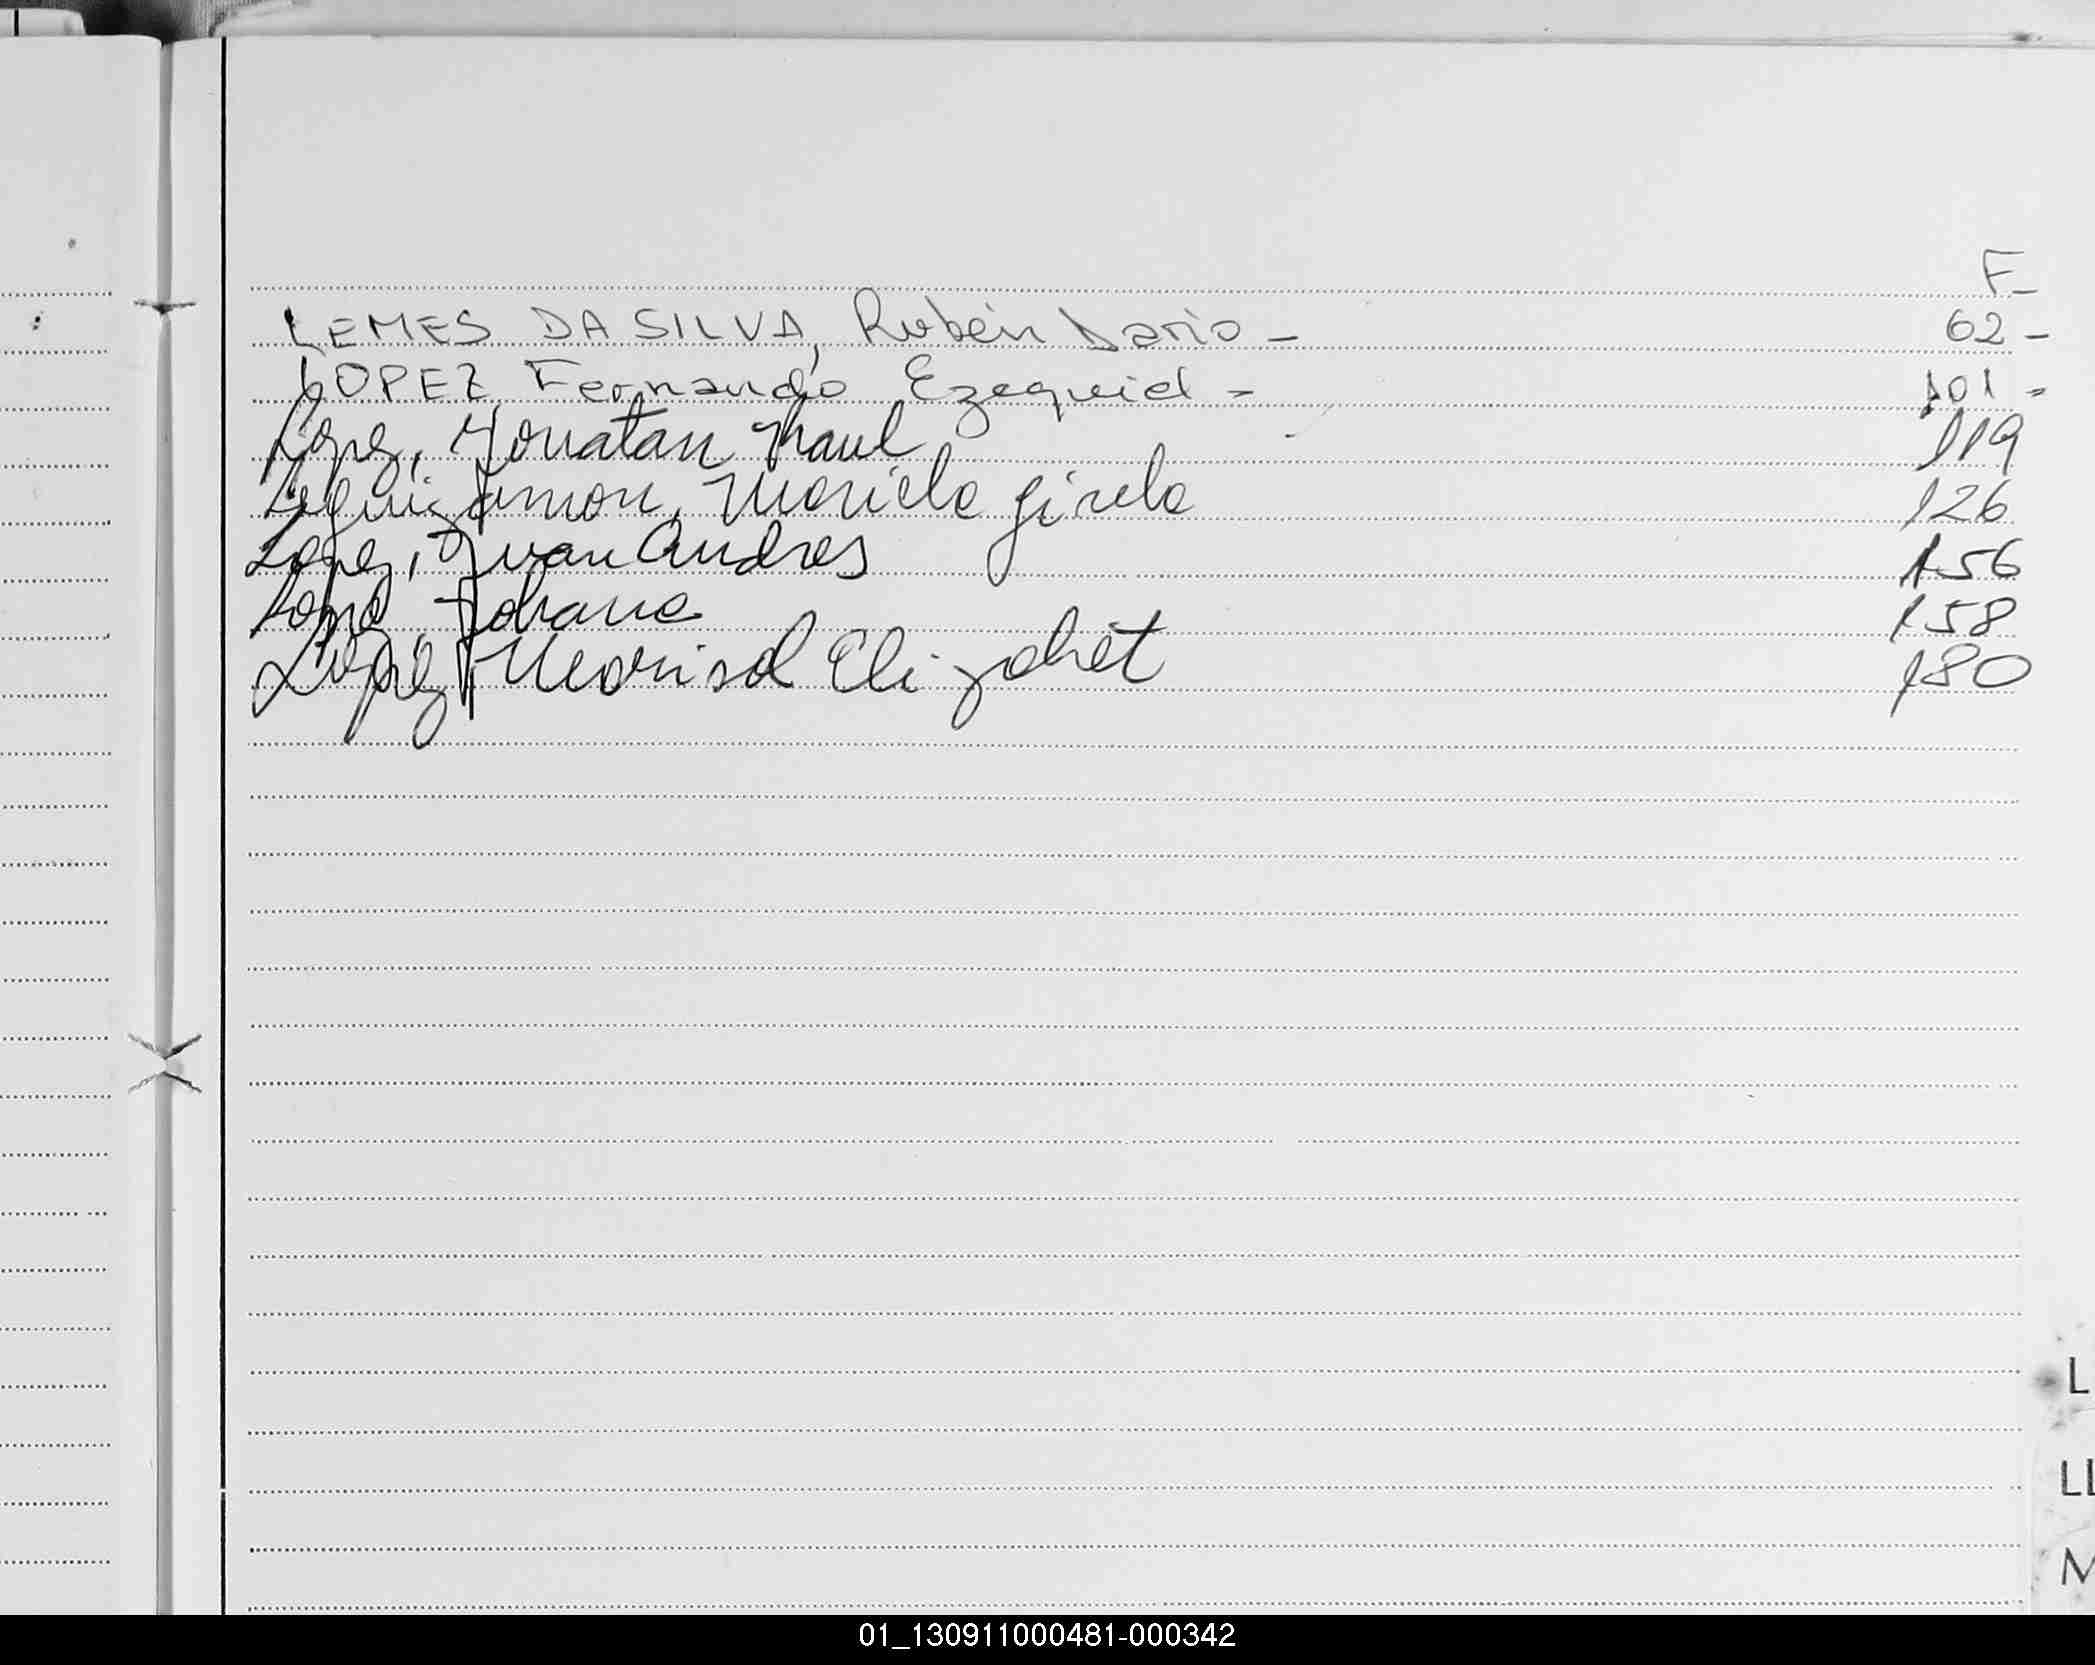 F-
LEMES DA SILVA, Rubén Dario - 62 -
LOPEZ Fernando Ezequiel - 101 -
Lopez, Jonatan Raul 119
Leguizamon, Mariela Gisela 126
Lopez, Juan Andres 156
Lopez, Johana 158
Lopez, Marisol Elizabet 180
L
LL
M
01_130911000481-000342